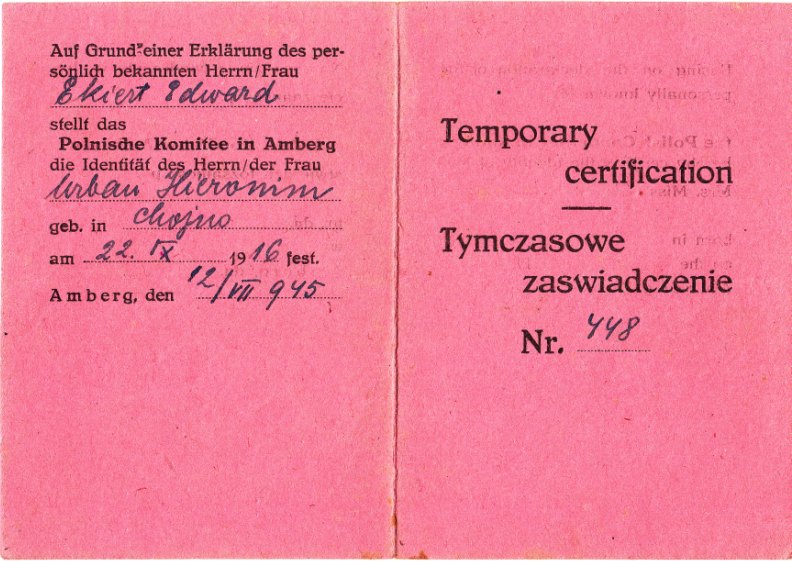 Auf Grund einer Erklärung des per-
sönlich bekannten Herrn/Frau
Ekiert Edward
stellt das
Polnische Komitee in Amberg
die Identität des Herrn/der Frau
Urban Hieronim
geb. in Chojno
am 22. IX 1916 fest.
Amberg, den 12/VII 945
Temporary
certification
Tymczasowe
zaswiadczenie
Nr. 448